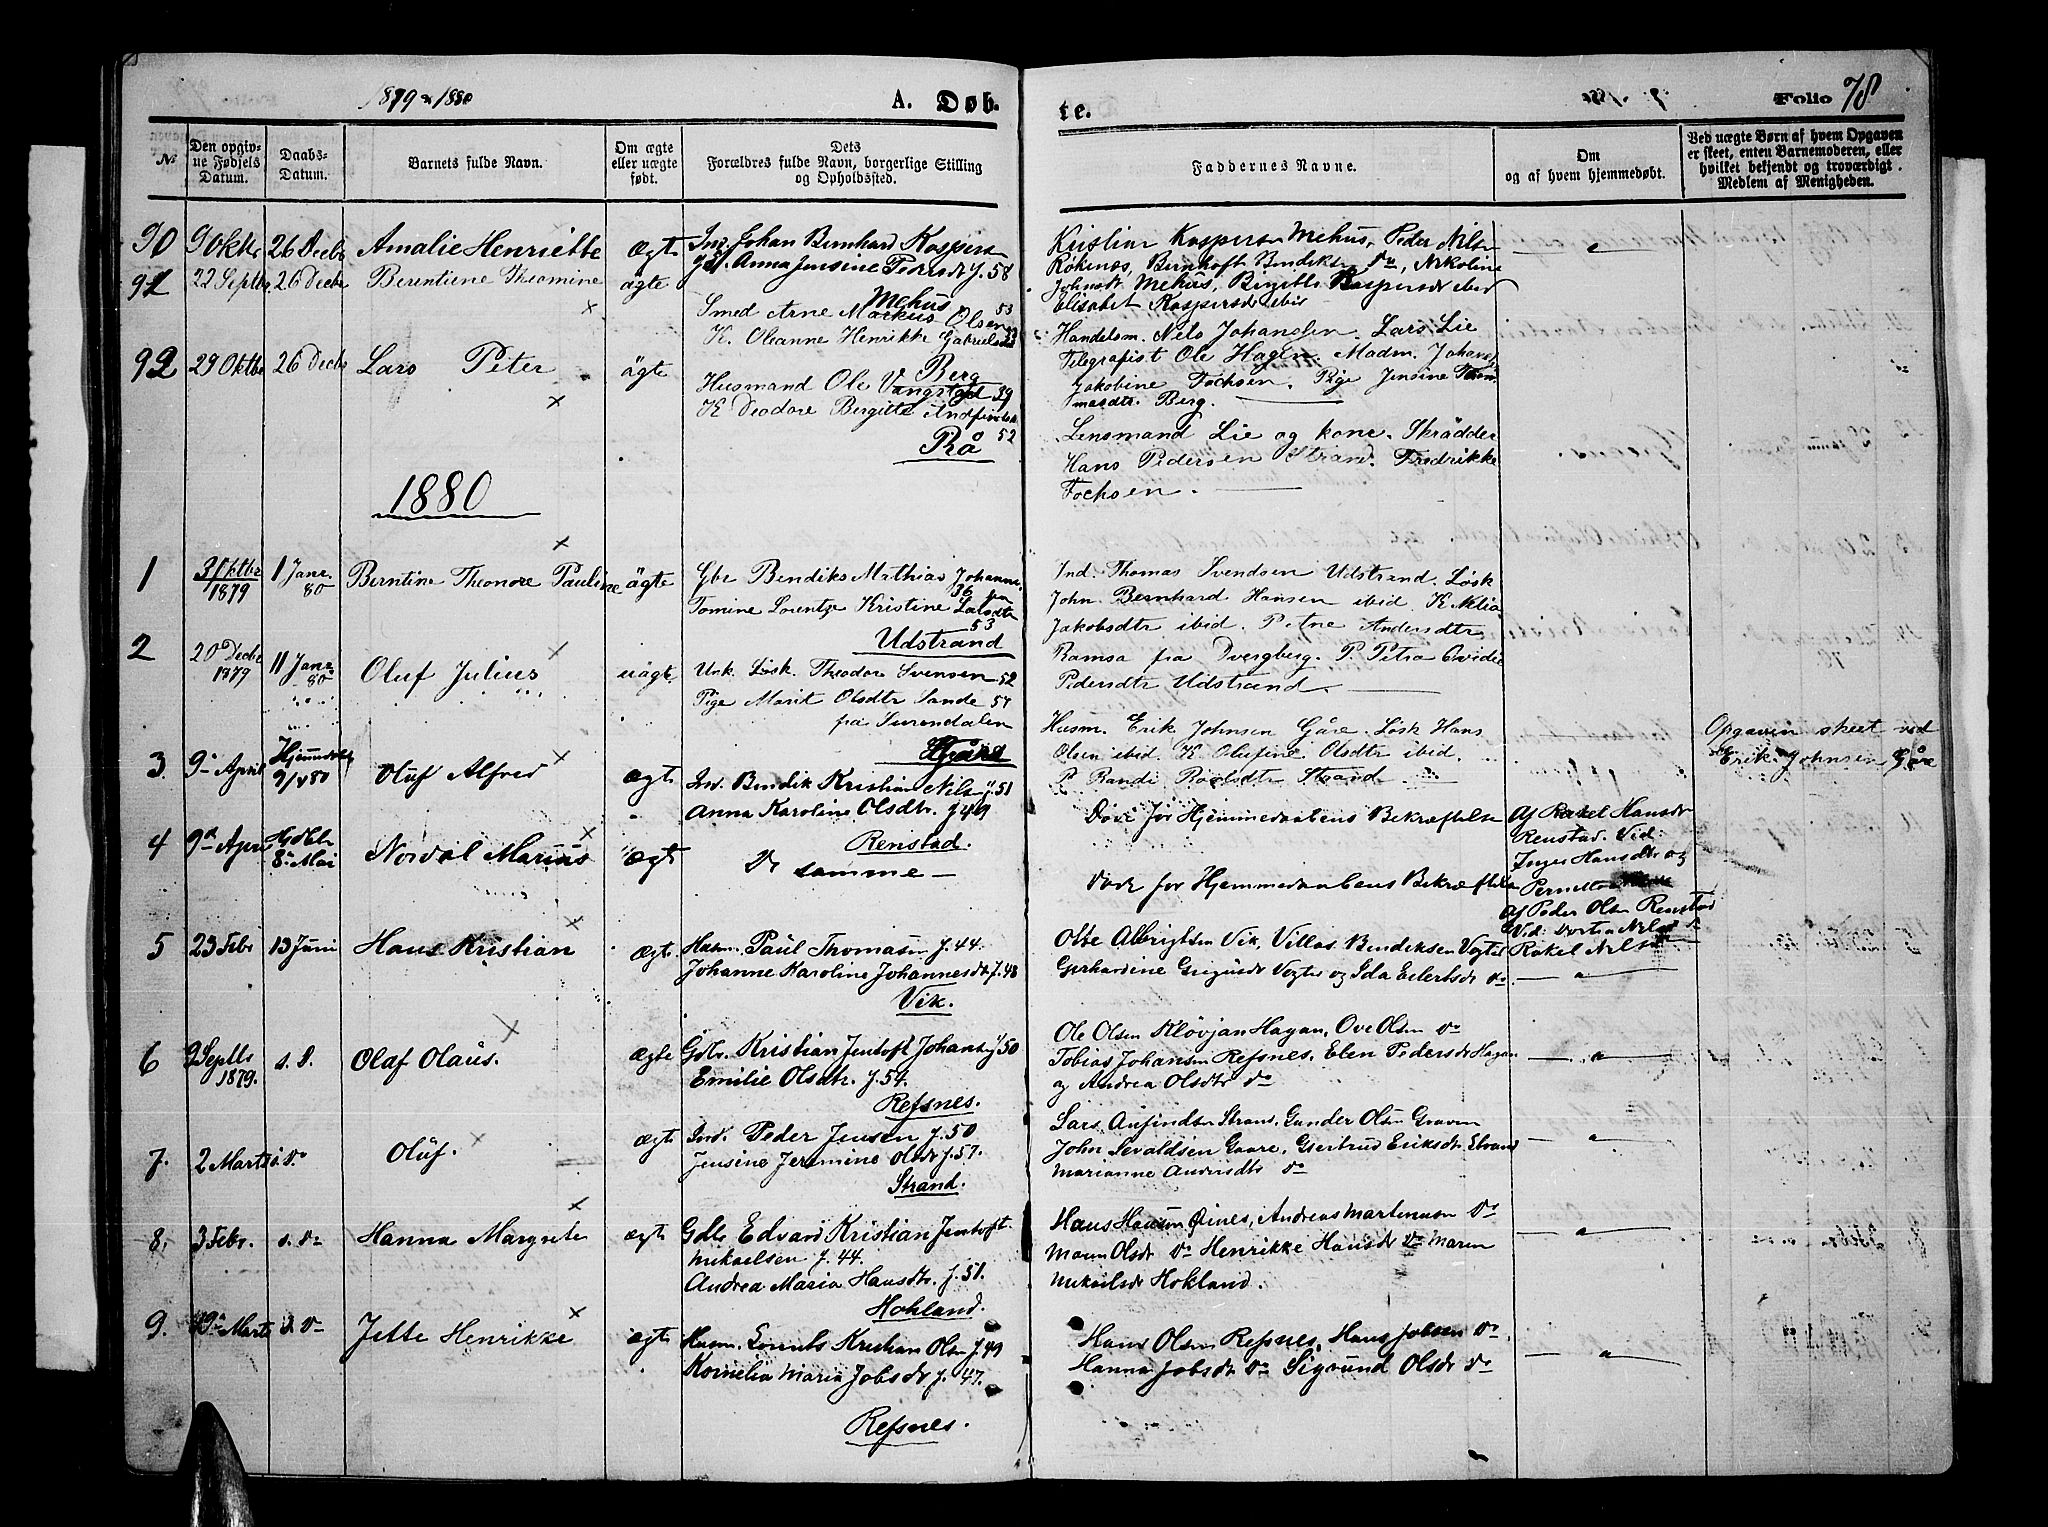 1879 & 1880
A. Døb-
te.
Folio 78
№
Den opgiv-
ne Fødsels
Datum.
Daabs-
Datum.
Barnets fulde Navn.
Om ægte
eller uægte
født.
Dets
Forældres fulde Navn, borgerlige Stilling
og Opholdssted.
Faddernes Navne.
Om
og af hvem hjemmedøbt.
Ved uægte Børn af hvem Opgaven
er skeet, enten Barnemoderen, eller
hvilket bekjendt og troværdigt
Medlem af Menigheden.
90 9 Oktbr 26 Decbr Amalie Henriette ægte
Ind. Johan Bernhard Kaspers
Anna Jensine Pedersdr f. 58
Mehus
Kristian Kaspersen Mehus, Peder Nilsen
Røkenes, Bernhoft Bendiksen do, Nikoline
Johnsdr Mehus, Birgitte Kaspersdr ibid
Elisabet Kaspersdr ibid
91 22 Septbr 26 Decbr Berntiene Theomine ægte
Smed Arne Markus Olsen 53
K. Oleanne Henrikke Gabrielsdr 33
Berg
Handelsm. Nels Johansen. Lars Lie
Telegrafist Ole Hagen. Madm. Johans
Jakobine Fochsen. Pige Jensine Thom
masdtr. Berg.
92 29 Oktbr 26 Decbr Lars Peter ägte
Husmand Ole Vangstad 39
K Deodore Bergitte Andfindsdr
52
Rå
Lensmand Lie og kone. Skrädder
Hans Pedersen Strand. Fredrikke
Fochsen.
1880
1 3 Oktbr 1879 1 Janr. 80 Berntine Theonore Pauline ägte
Gbr Bendiks Mathias Johanns
36 fra
Tomine Lorentze Kristine Larsdtr
53
Udstrand
Ind. Thomas Svendsen Udstrand. Løsk
John. Bernhard Hansen ibid. K Nelia
Jakobsdtr ibid. Petne Andersdtr
Ramsa fra Dvergberg. P. Petra Ovidie
Pedersdtr Udstrand.
2 20 Decbr 1879 11 Janr. 80 Oluf Julius uägte
Unk. Løsk. Theodor Svensen 52
Pige Marit Olsdtr Sande 57
fra Surendalen
Husm. Erik Johnsen Gåre. Løsk Hans
Olsen ibid. K. Olufine Olsdtr ibid.
P. Randi Roaldsdtr Strand
Opgaven skeet ved
Erik Johnsen Gåre
3. 9de April Hjemmedøbt 9/4 80 Oluf Alfred ægte
Ind. Bendik Kristian Nilsen f. 51
Anna Karoline Olsdtr. f 49
Renstad.
Døde før Hjemmedaabens Bekræftelse
Af Rakel Hansdr
Renstad. Vid:
Inger Hansdtr og
Pernette
4 9de April Hjdbt 8de Mai Nordal Marius ægte
De samme
Døde før Hjemmedaabens Bekræftelse
Af Peder Olsen Renstad
Vid: Dortea Nelsdr
Rakel Nelsdr
5 23 Febr 13 Juni Hans Kristian ægte
Husm. Paul Thomassen f. 44.
Johanne Karoline Johannesdtr f. 48
Vik.
Olve Albrigtsen Vik, Villas Bendiksen Vogtes
Gerhardine Grigusdr Vogtes og Ida Eilertsdr do.
6 2 Septbr 1879. s. D. Olaf Olaus. ægte
Gdbr. Kristian Jentoft Johansen f. 50
Emilie Olsdtr. f. 54.
Refsnes.
Ole Olsen Kløvjan Hagan, Ove Olsen do
Tobias Johansen Refsnes, Elen Pedersdr Hagan
og Andrea Olsdtr do
7. 2 Marts s. D. Oluf. ægte
Ind. Peder Jensen f. 50
Jensine Jeremine Olsdr f. 57.
Strand.
Lars Anfindsen Strand, Gunder Olsen Graven
John Sevaldsen Gaare, Gjertrud Eriksdr Strand
Marianne Andersdtr do
8. 3 Febr. s. D. Hanna Margrete ægte
Gdbr Edvard Kristian Jentoft
Mikaelsen f. 44.
Andrea Maria Hansdtr. f. 51.
Hokland.
Hans Hansen Øines, Andreas Martenusen do
Maren Olsdr do Henrikke Hansdr do Maren
Mikaelsdr Hokland.
9. 19de Marts s. D. Jette Henrikke ægte
Husm. Lorents Kristian Olsen f. 49
Kornelia Maria Jobsdr f. 47.
Refsnes.
Hans Olsen Refsnes, Hans Jobsen do
Hanna Jobsdr do Sigrund Olsdr do